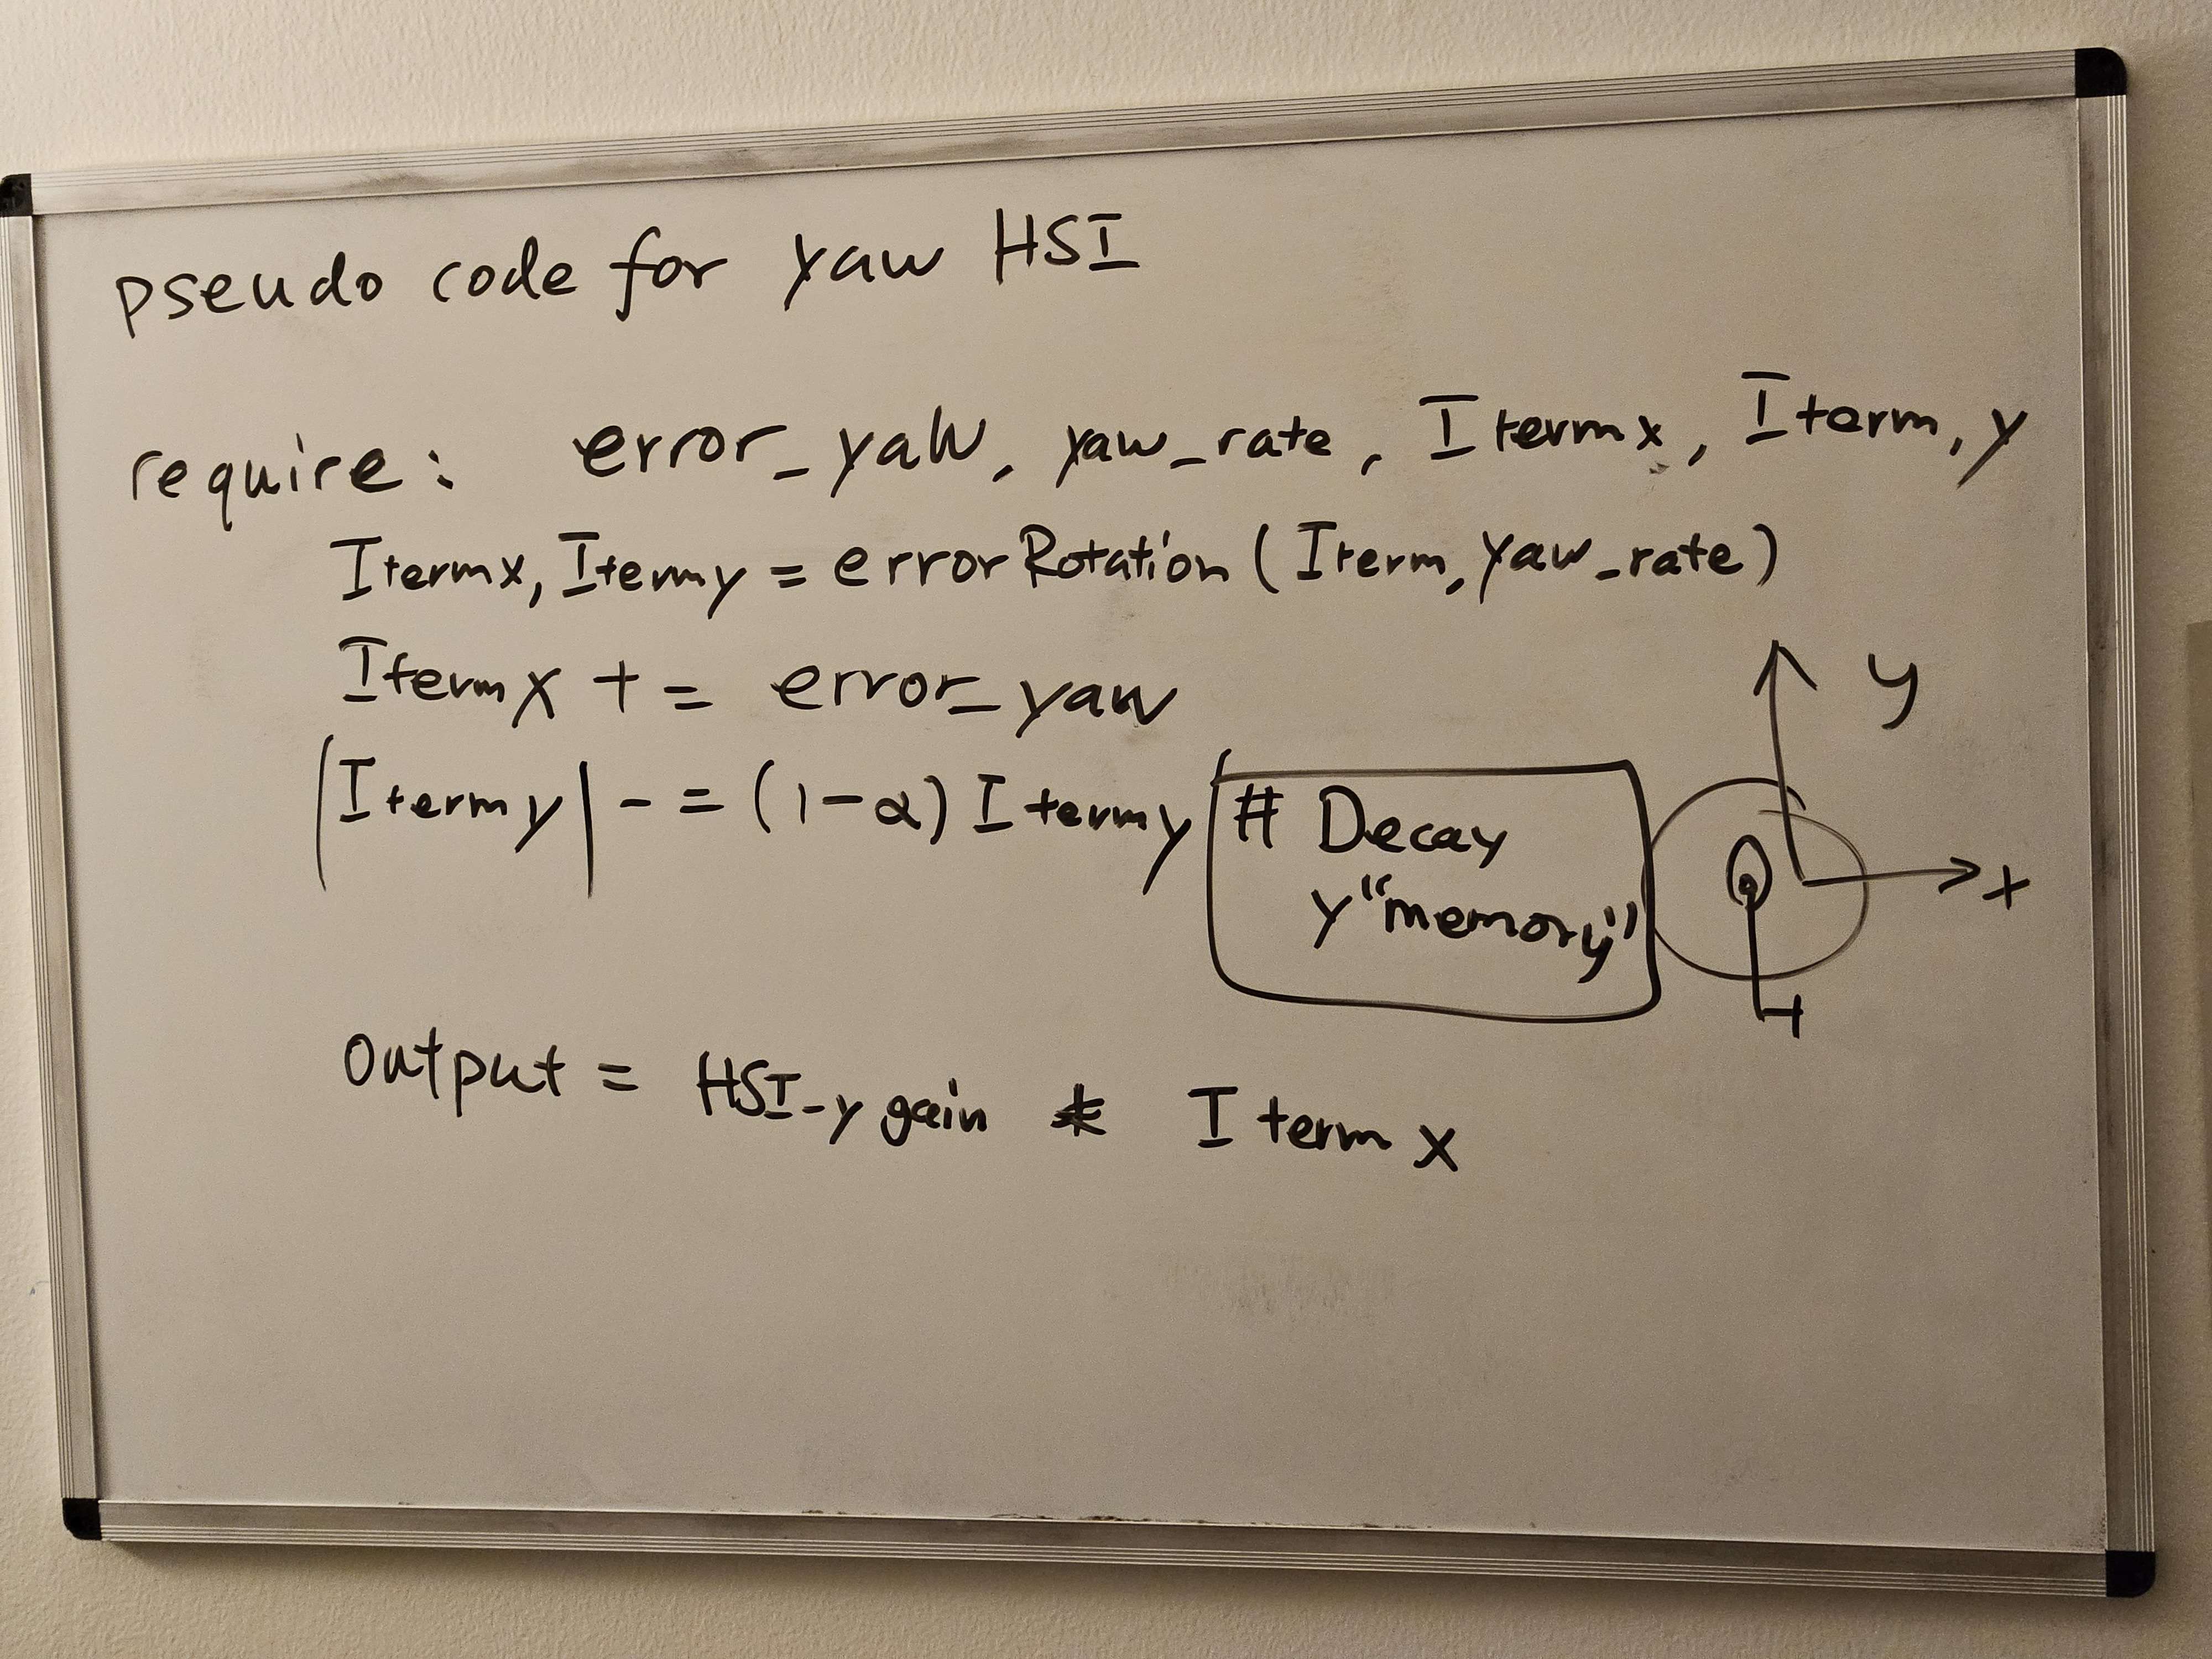 pseudo code for yaw HSI
require: error_yaw, yaw_rate, Itermx, Iterm,y
Itermx, Itermy = errorRotation (Iterm, yaw_rate)
Itermx += error_yaw
|Itermy| -= (1-α) Itermy # Decay
y "memory"
y
x
Output = HSI-y gain * Iterm x